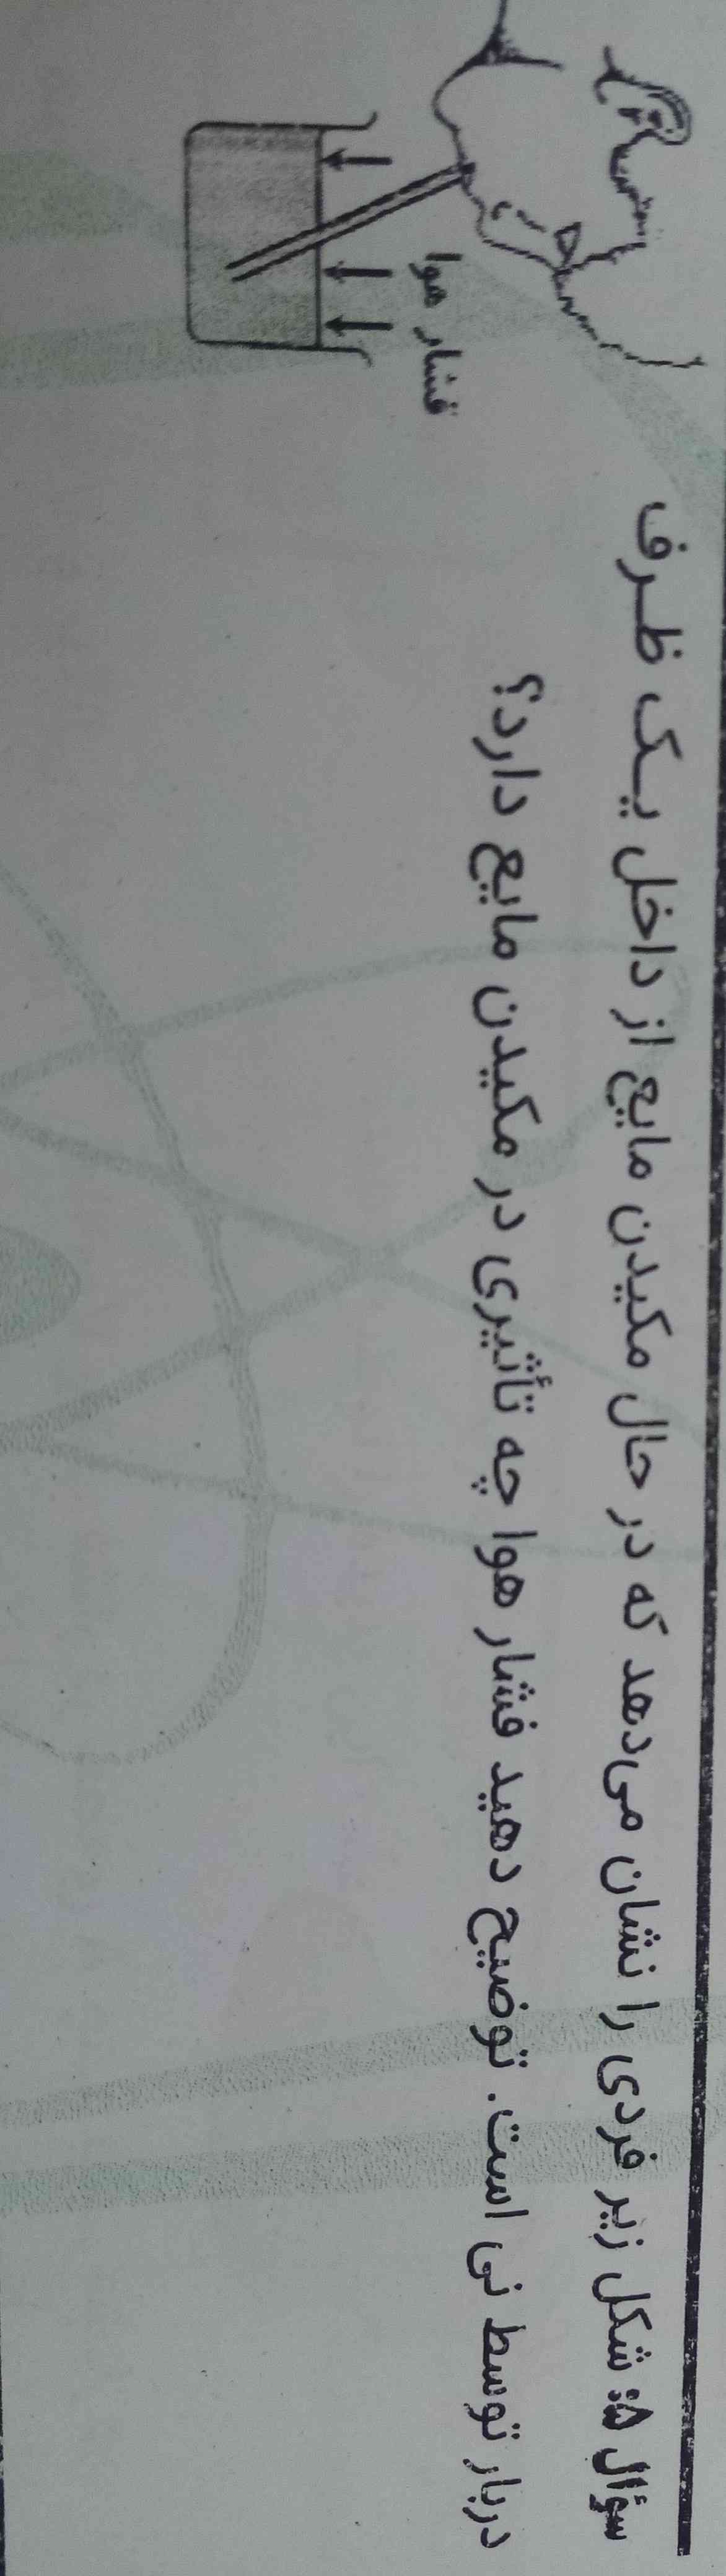 سؤال ۵: شکل زیر فردی را نشان می‌دهد که در حال مکیدن مایع از داخل یک ظرف
درباز توسط نی است. توضیح دهید فشار هوا چه تأثیری در مکیدن مایع دارد؟
فشار هوا